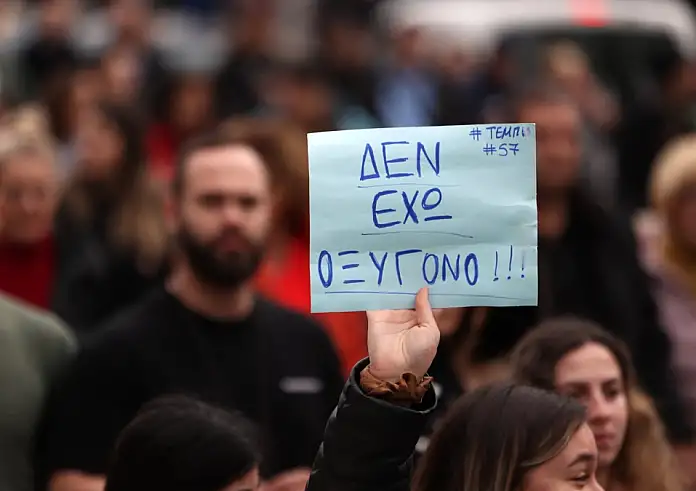 #ΤΕΜΠΗ
#57
ΔΕΝ
ΕΧΩ
ΟΞΥΓΟΝΟ!!!